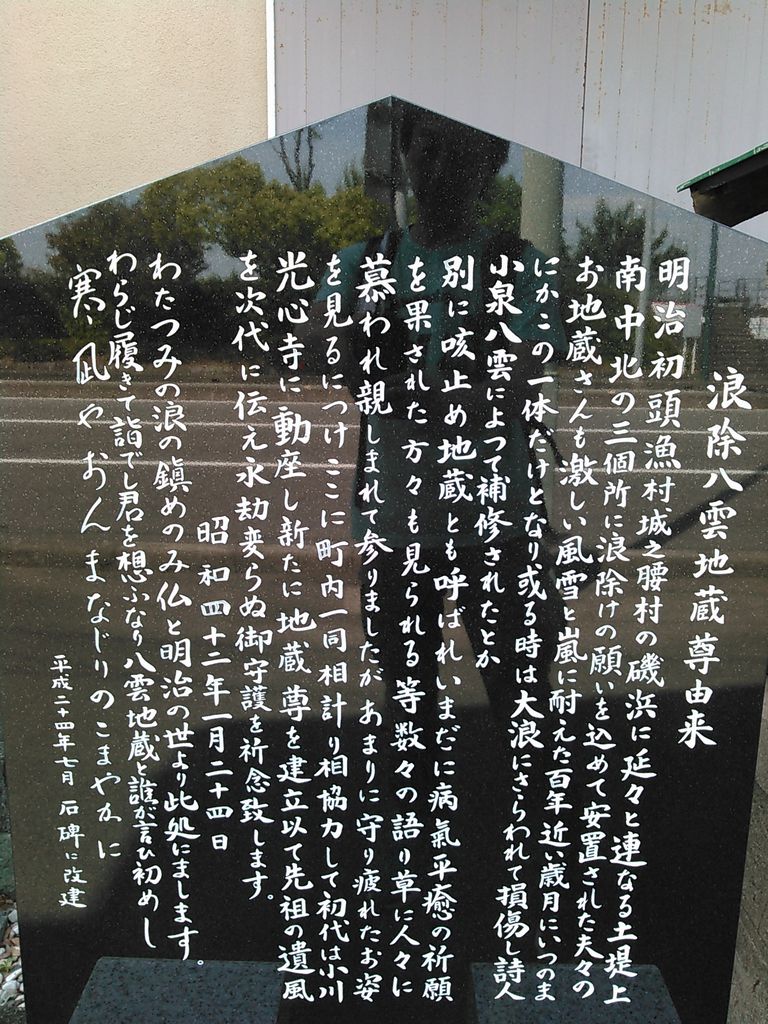 浪除八雲地蔵尊由来
明治初頭漁村城之腰村の磯浜に延々と連なる土堤上
南中北の三個所に浪除けの願いを込めて安置された夫々の
お地蔵さんも激しい風雪と嵐に耐えた百年近い歳月にいつのま
にかこの一体だけとなり或る時は大浪にさらわれて損傷し詩人
小泉八雲によって補修されたとか
別に咳止め地蔵とも呼ばれいまだに病氣平癒の祈願
を果された方々も見られる等数々の語り草に人々に
慕われ親しまれて参りましたがあまりに守り疲れたお姿
を見るにつけここに町内一同相計り相協力して初代は小川
光心寺に動座し新たに地蔵尊を建立以て先祖の遺風
を次代に伝え永劫変らぬ御守護を祈念致します。
昭和四十二年一月二十四日
わたつみの浪の鎭めのみ仏と明治の世より此処にまします。
わらじ履きて詣でし君を想ふなり八雲地蔵と誰が言ひ初めし
寒凪やおんまなじりのこまやかに
平成二十四年七月 石碑に改建